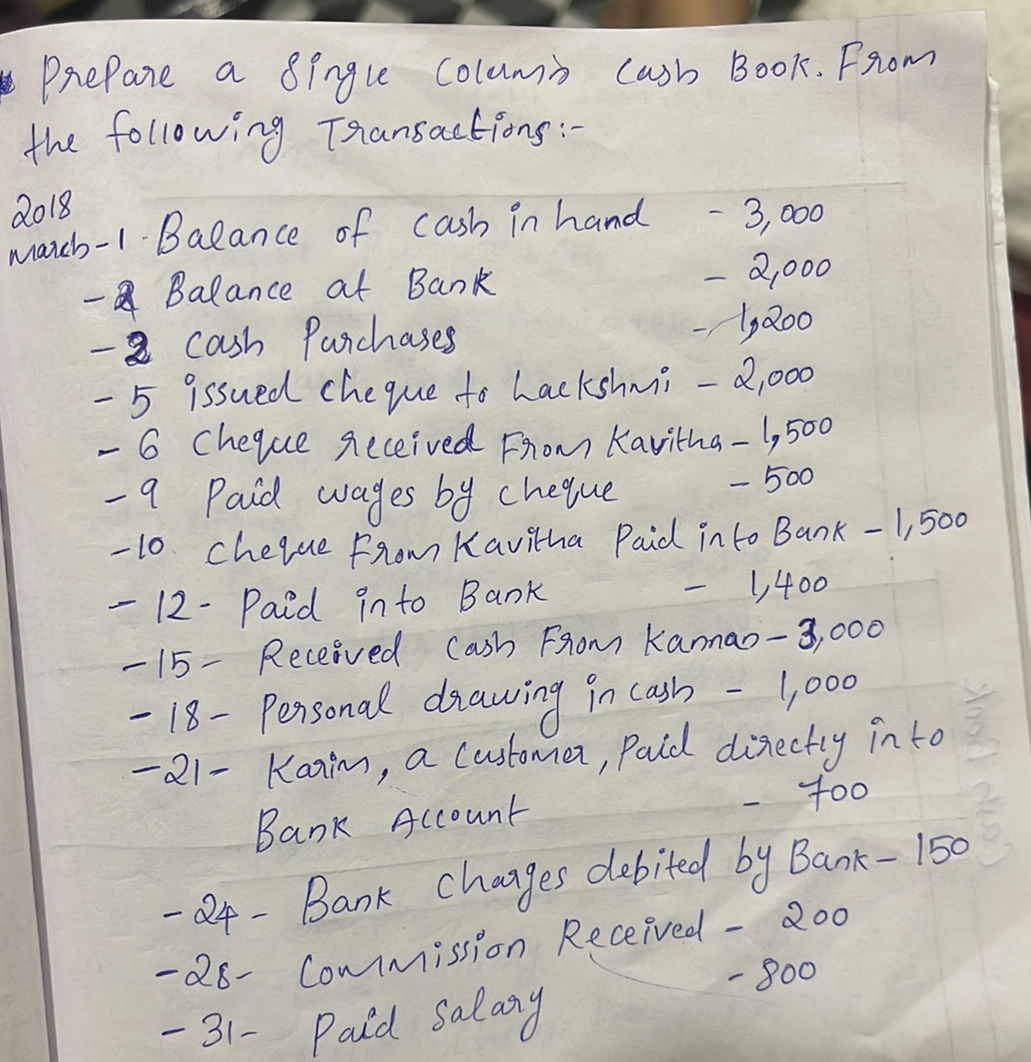 Prepare a Single Column Cash Book. From
the following Transactions:-
2018
March-1 Balance of cash in hand - 3,000
-2 Balance at Bank - 2,000
-2 cash Purchases - 1,200
-5 issued cheque to Lackshmi - 2,000
-6 cheque received From Kavitha - 1,500
-9 Paid wages by cheque - 500
-10. cheque From Kavitha Paid into Bank - 1,500
-12- Paid into Bank - 1,400
-15- Received cash From Kannan - 3,000
-18- Personal drawing in cash - 1,000
-21- Karim, a customer, Paid directly into
Bank Account - 700
-24- Bank charges debited by Bank - 150
-28- Commission Received - 200
-31- Paid Salary - 800